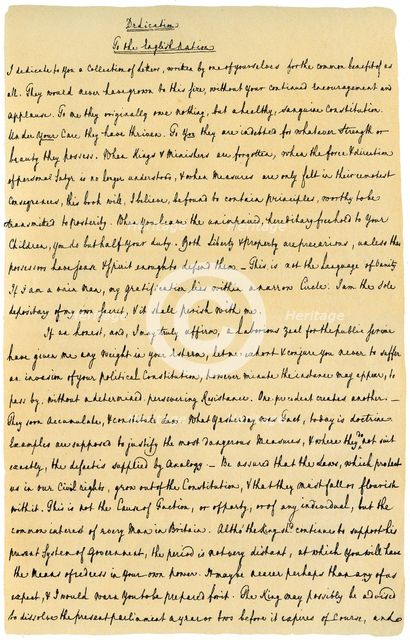 Dedication
To the English Nation
I dedicate to You a Collection of Letters, written by one of yourselves for the common benefit of us
all. They would never have grown to this size, without Your continued Encouragement and
applause. To me they originally owe nothing, but a healthy, sanguine Constitution.
Under Your Care they have thriven. To You they are indebted for whatever strength or
beauty they possess. When Kings & Ministers are forgotten, when the force & direction
of personal Satyr is no longer understood, & when measures are only felt in their remotest
Consequences, this book will, I believe, be found to contain principles, worthy to be
transmitted to posterity. When you leave the unimpaired, hereditary freehold to Your
Children, You do but half Your duty. Both Liberty & property are precarious, unless the
possessors have sense & Spirit enough to defend them. – This is not the Language of Vanity.
If I am a vain Man, my gratification lies within a narrow Circle. I am the sole
depositary of my own secret, & it shall perish with me.
If an honest, and, I may truly affirm, a laborious Zeal for the public Service
have given me any Weight in Your Esteem, let me exhort & conjure You never to suffer
an invasion of Your political Constitution, however minute the instance may appear, to
pass by, without a determined, persevering Resistance. One precedent creates another. –
They soon accumulate, & constitute Law. What Yesterday was Fact, today is doctrine.
Examples are supposed to justify the most dangerous Measures, & where they do not suit
exactly, the defect is supplied by Analogy. – Be assured that the Laws, which protect
us in our Civil rights, grow out of the Constitution, & that they must fall or flourish
with it. This is not the Cause of Faction, or of party, or of any individual, but the
common interest of every Man in Britain. Altho' the King shd. continue to support his
present System of Government, the period is not very distant, at which You will have
the Means of redress in Your own power. It may be nearer perhaps than any of us
expect, & I would warn You to be prepared for it. The King may possibly be advised
to dissolve the present parliament a year or two before it expires of Course, and
Heritage
Heritage